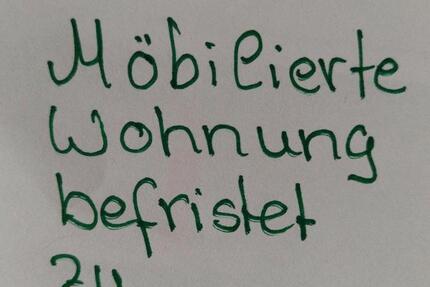 Möbilierte
Wohnung
befristet
zu